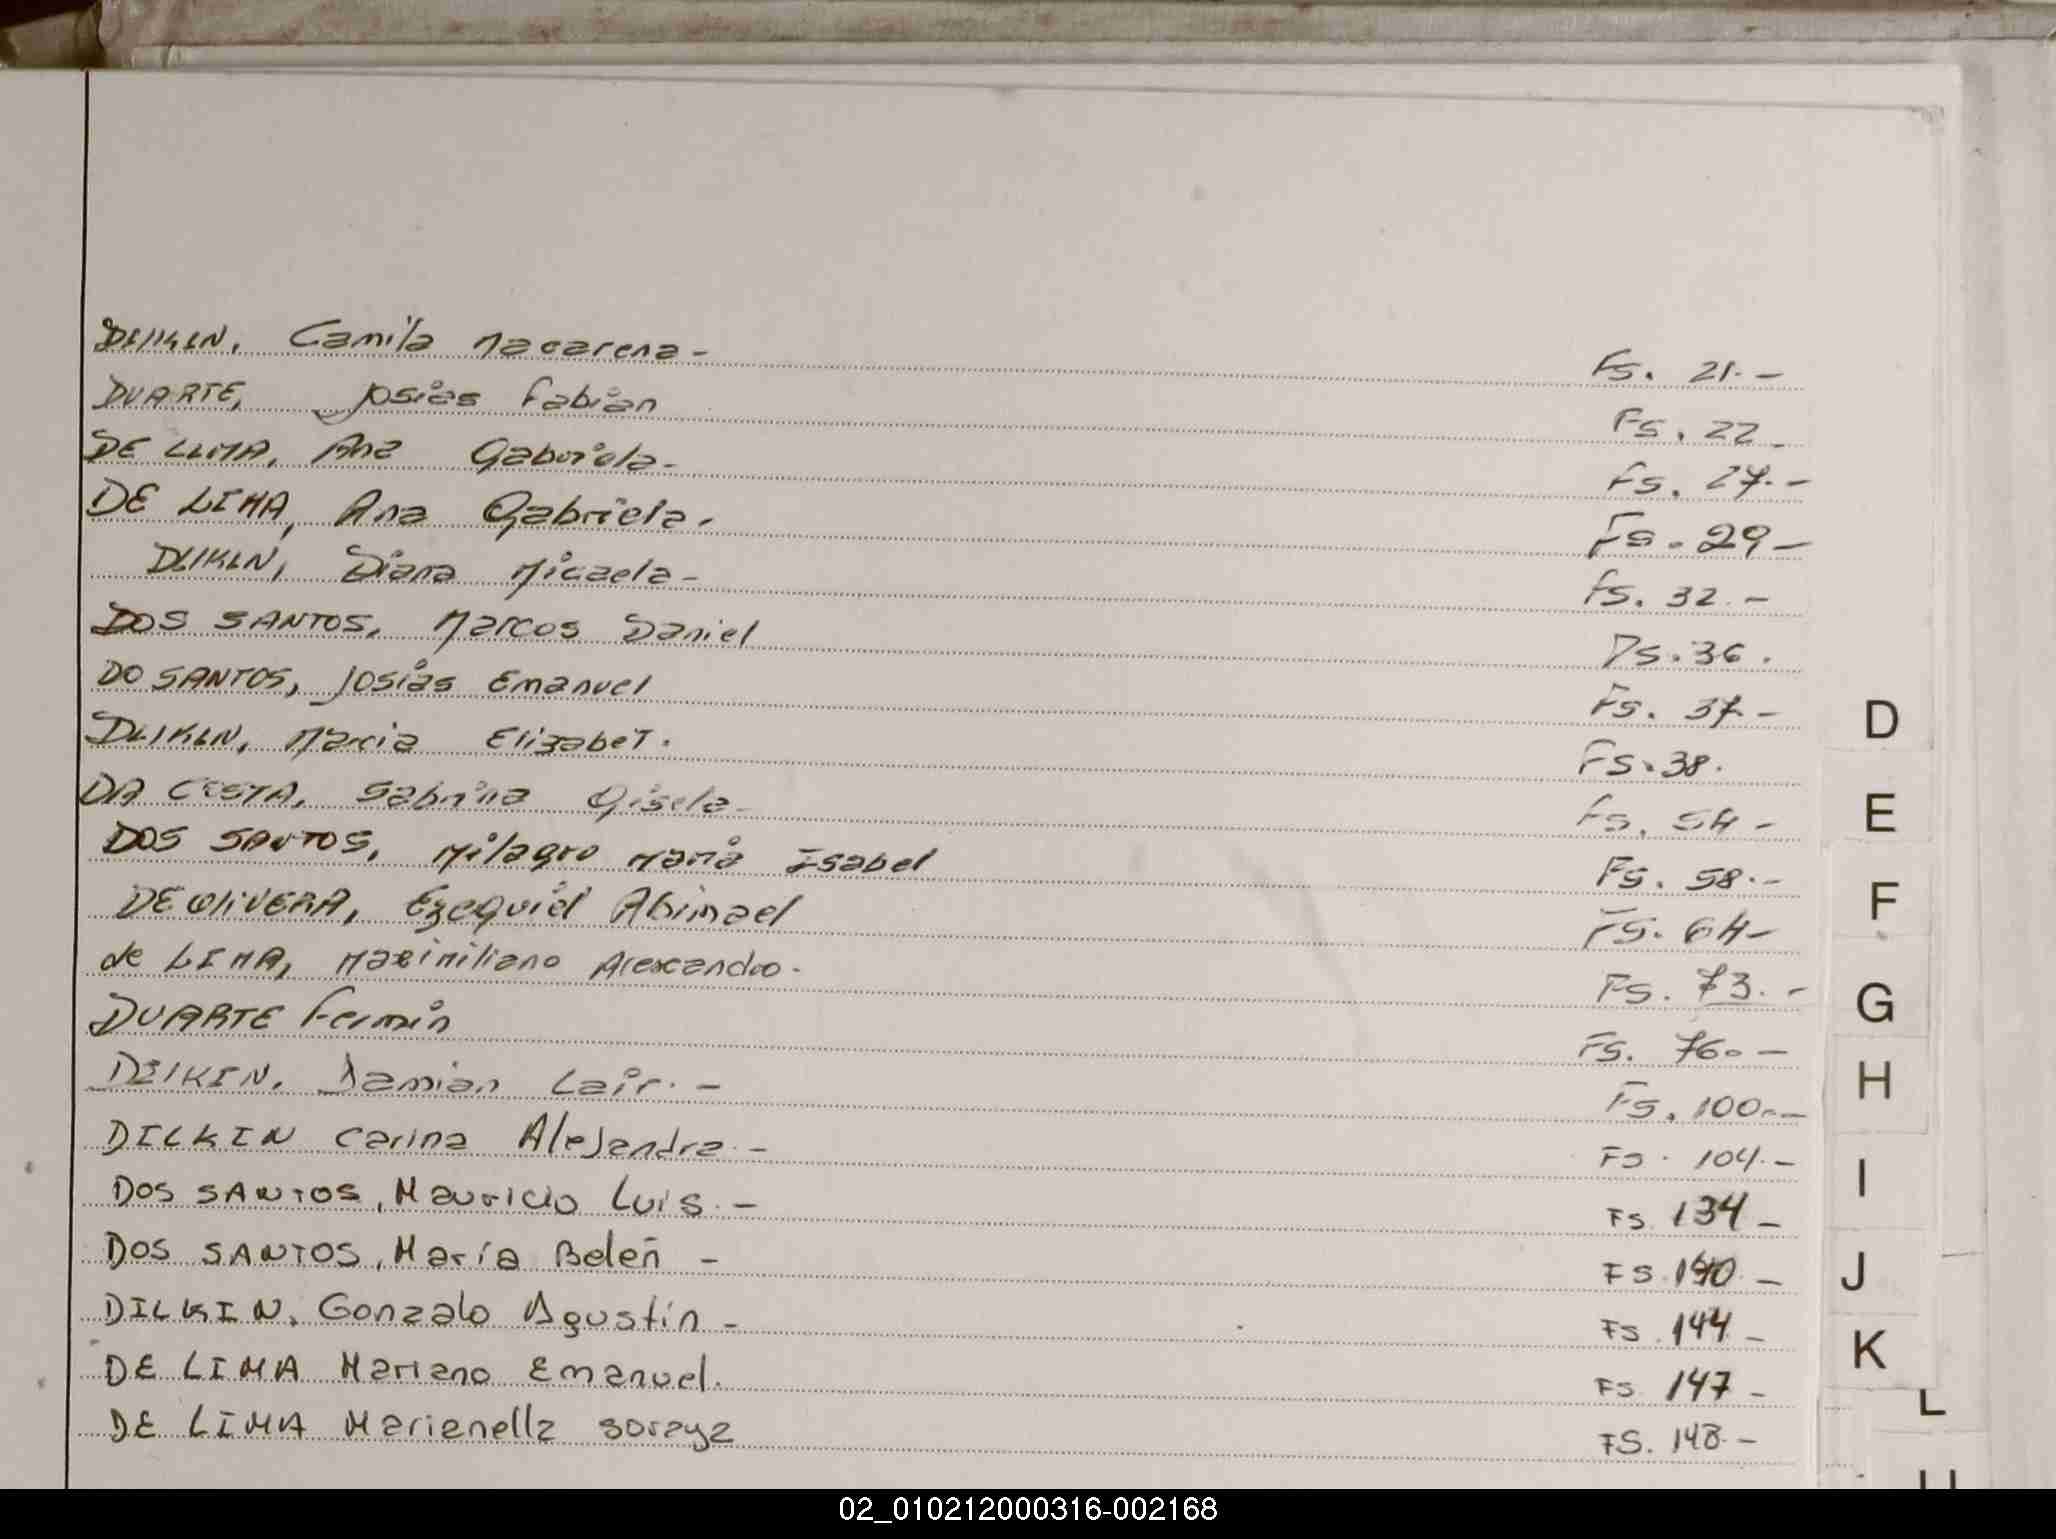 DEIKEN, Camila Macarena - Fs. 21.-
DUARTE, Josías Fabián Fs. 22-
DE LIMA, Ana Gabriela- Fs. 27.-
DE LIMA, Ana Gabriela. Fs. 29-
DEIKEN, Diana Micaela- Fs. 32.-
DOS SANTOS, Marcos Daniel Fs. 36.
DO SANTOS, Josías Emanuel Fs. 37-
DEIKEN, María Elizabet. Fs. 38.
DA COSTA, Sabrina Gisela- Fs. 54-
DOS SANTOS, Milagro María Isabel Fs. 58.-
DE OLIVERA, Ezequiel Abimael Fs. 64-
de LIMA, Maximiliano Alexandro. Fs. 73.-
DUARTE Fermín Fs. 76.-
DEIKEN. Damian Lair.- Fs. 100.-
DILKIN Carina Alejandra.- Fs. 104.-
DOS SANTOS, Mauricio Luis.- Fs. 134-
DOS SANTOS, María Belén - Fs. 140.-
DILKIN, Gonzalo Agustín- Fs. 144-
DE LIMA Mariano Emanuel. Fs. 147-
DE LIMA Marianella Soraya FS. 148.-
D
E
F
G
H
I
J
K
L
02_010212000316-002168